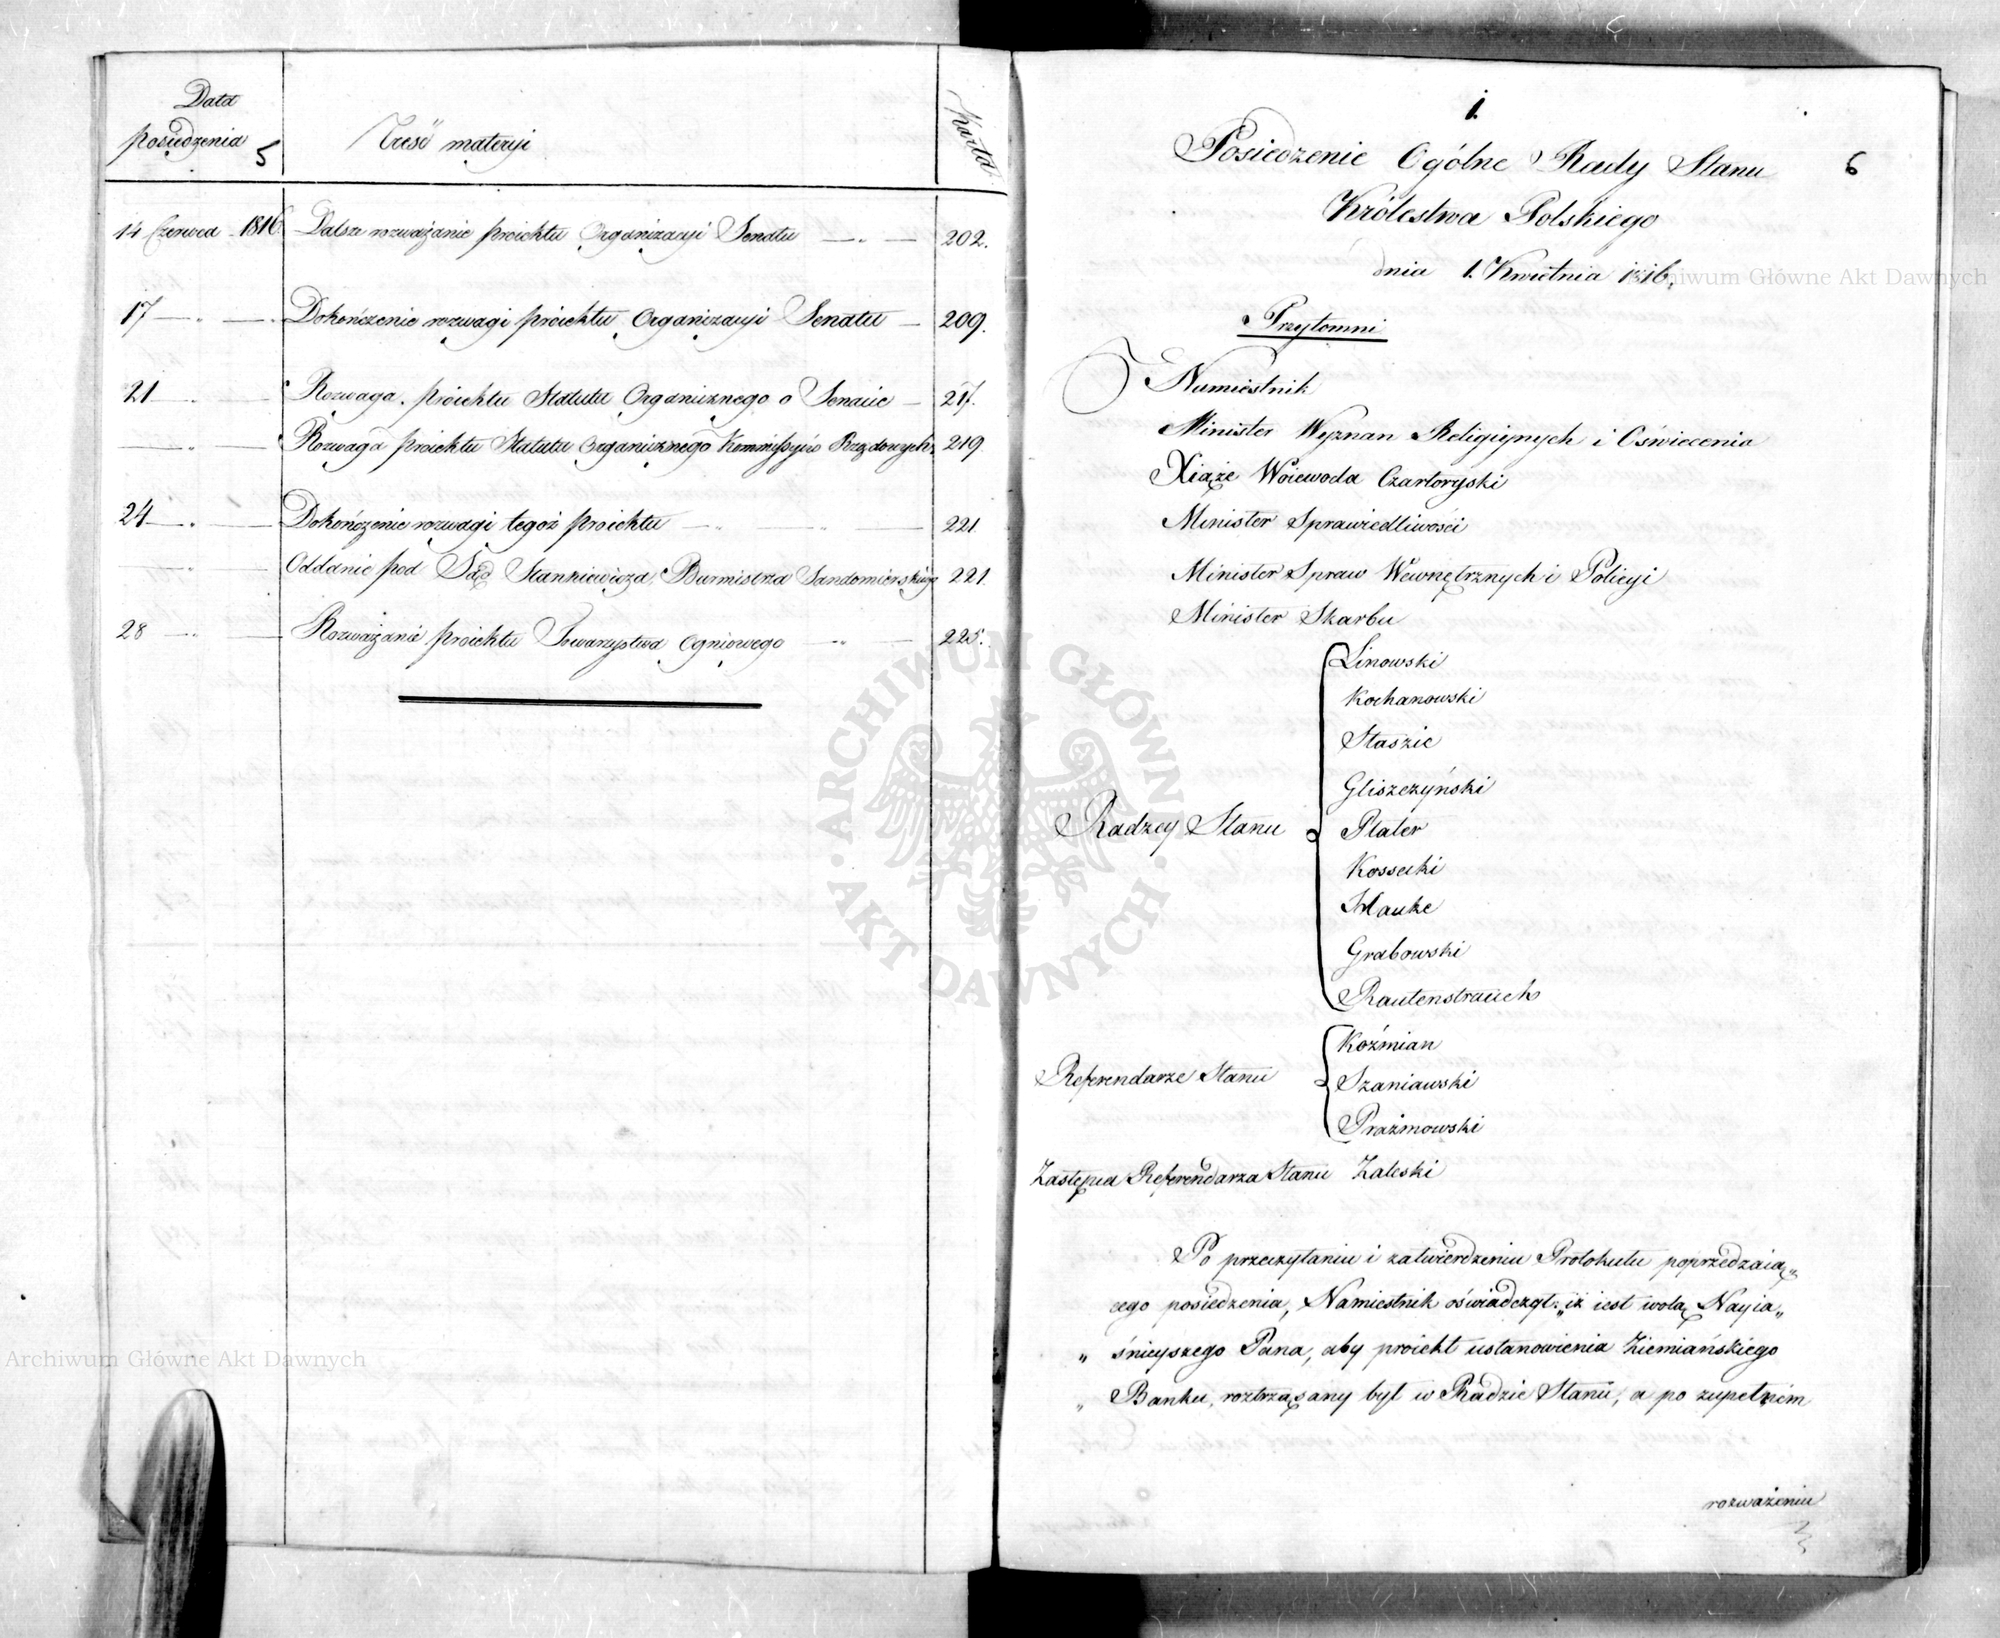 Data
posiedzenia 5
Treść materyi
Karta
14 Czerwca 1816. Dalsze rozważanie proiektu Organizacyi Senatu 202.
17 Dokończenie rozwagi proiektu Organizacyi Senatu 209.
21 Rozwaga proiektu Statutu Organicznego o Senacie 217.
Rozwaga proiektu Statutu Organicznego Kommissyiów Rządowych 219.
24 Dokończenie rozwagi tegoż proiektu 221.
Oddanie pod Sąd Stankiewicza Burmistrza Sandomierskiego 221.
28 Rozważanie proiektu Towarzystwa Ogniowego 225.
1.
Posiedzenie Ogólne Rady Stanu 6
Królestwa Polskiego
dnia 1. Kwietnia 1816.
Przytomni
Namiestnik
Minister Wyznan Religiynych i Oświecenia
Xiąże Woiewoda Czartoryski
Minister Sprawiedliwości
Minister Spraw Wewnętrznych i Policyi
Minister Skarbu
Linowski
Kochanowski
Staszic
Gliszczyński
Radzcy Stanu Plater
Kossecki
Hauke
Grabowski
Rautenstrauch
Koźmian
Referendarze Stanu Szaniawski
Prażmowski
Zastępca Referendarza Stanu Zaleski
Po przeczytaniu i zatwierdzeniu Protokułu poprzedzaią„
cego posiedzenia, Namiestnik oświadczył: „iż iest wolą Nayia„
„ śnieyszego Pana, aby proiekt ustanowienia Ziemiańskiego
„ Banku, roztrząsany był w Radzie Stanu, a po zupełném
rozważeniu
Archiwum Główne Akt Dawnych
Archiwum Główne Akt Dawnych
ARCHIWUM GŁÓWNE · AKT DAWNYCH ·